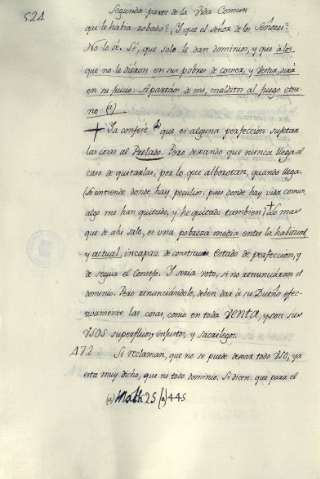 524
Segunda parte de la Vida Comun
que le havia robado? Y que el señor de los Señores?
No lo á. Sí, que solo le dan dominio, y que á los
que no le dieron en sus pobres de comer, y Vestir, dirá
en su juicio. Apartaos de mi, malditos al fuego eter
no (a)
Ya confiese que es alguna perfeccion sujetar
las cosas al Prelado. Pero dexando que nunca llega al
caso de quitarlas, por lo que alborotan, quando llega
(se entiende donde hay peculio: pues donde hay vida comun,
algo me han quitado, y he quitado tambien) Lo mas
que de ahi sale, es una pobreza media entre la habitual
y actual, incapaz de constituir Estado de perfeccion, y
de seguir el Consejo. Y seria voto, si no renunciaron el
dominio. Pero renunciandole, deben dar á su Dueño efec
tivamente las cosas, como en toda Venta, y son sus
usos superfluos, injustos, y sacrilegos.
472 Si reclaman, que no se puede dexar todo uso, ya
esta muy dicho, que no todo dominio. Si dicen que para el
(a) Math 25 (b) 445